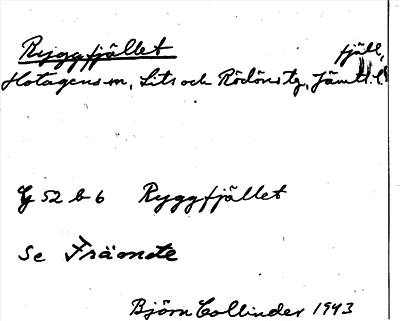 Ryggfjället fjäll,
Hotagens sn, Lits och Rödöns tg, Jämtl. l.
G 52 b 6 Ryggfjället
Se Främste
Björn Collinder 1943